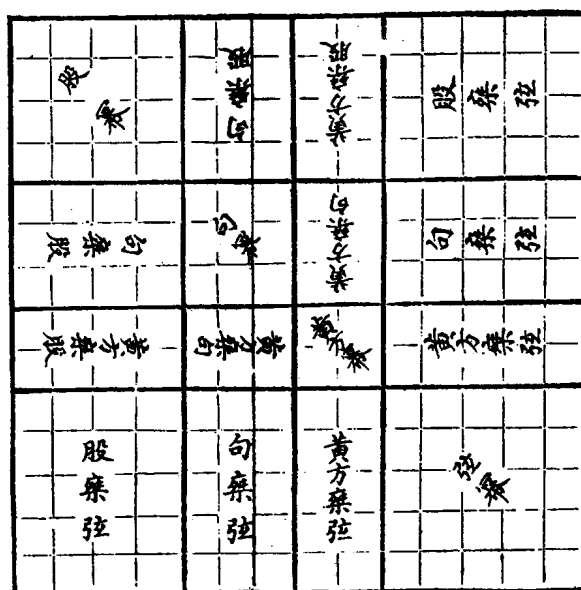 股冪
句乘股
黃方乘股
股乘弦
句乘股
句冪
黃方乘句
句乘弦
黃方乘股
黃方乘句
黃方冪
黃方乘弦
股乘弦
句乘弦
黃方乘弦
弦冪